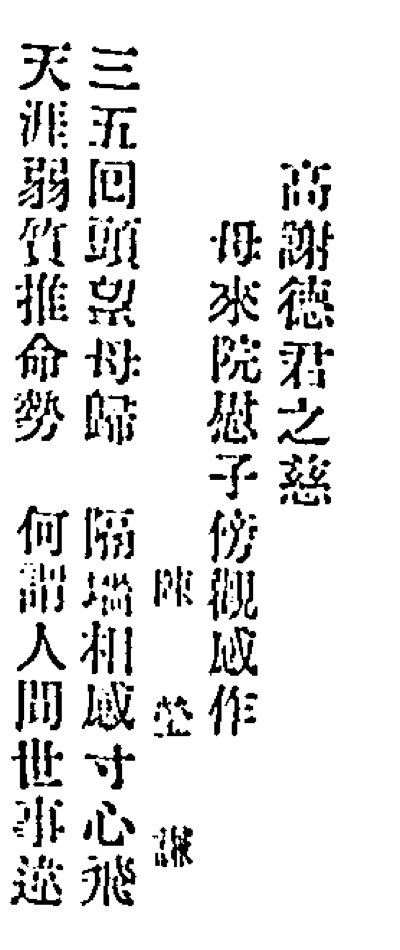 高謝德君之慈
母來院慰子傍觀感作
陳
三五回頭望母歸 隔墻相感寸心飛
天涯弱質推命勢 何謂人間世事違